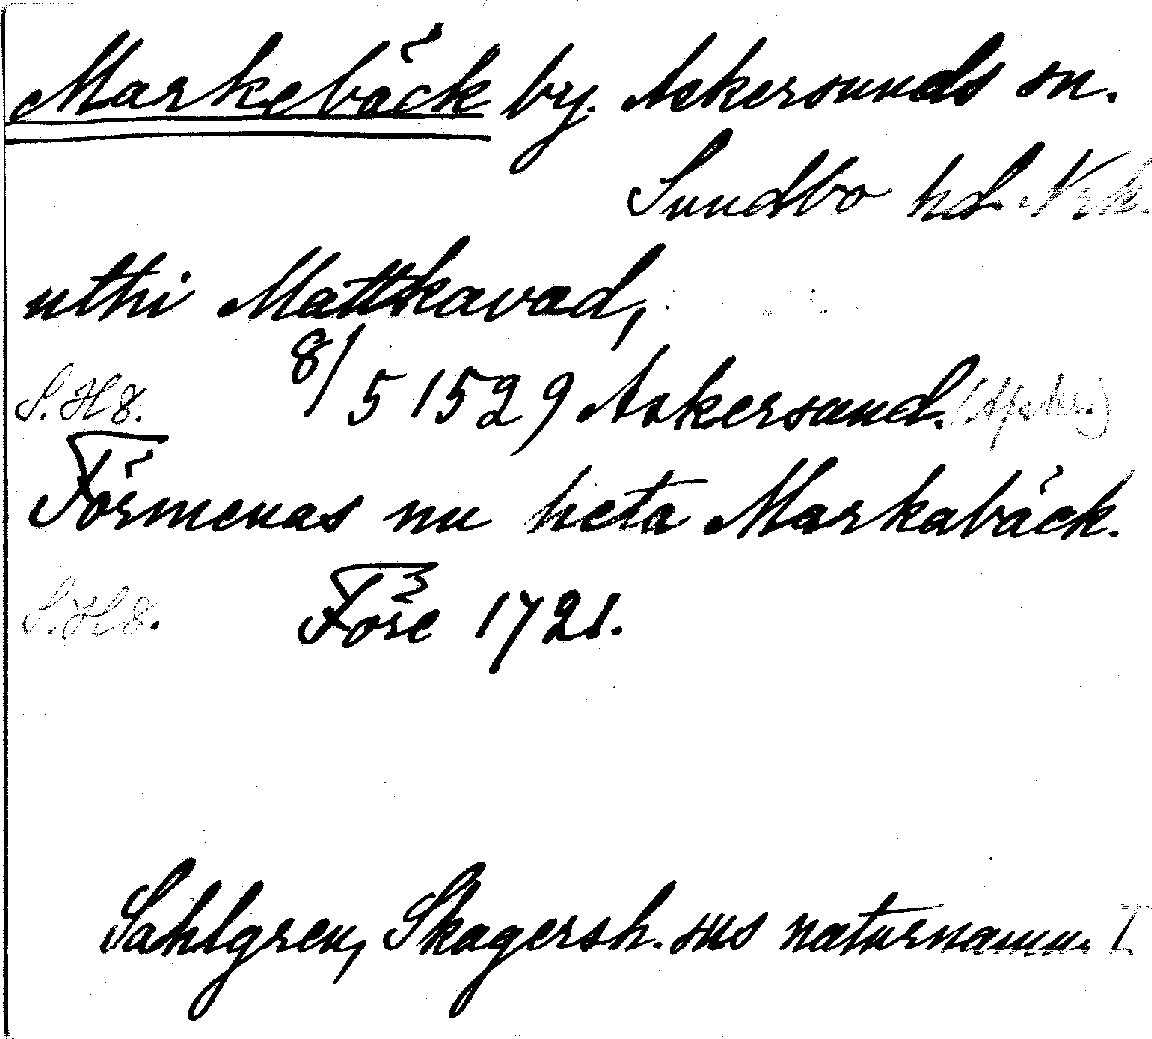 Markebäck by. Askersunds sn.
Sundbo hd. Nrk.
uthi Mattkavad,
S. H 8. 8/5 1529 Askersund. (Afskr.)
Förmenas nu heta Markabäck.
S. H 8. Före 1721.
Sahlgren, Skagersh. sns naturnamn. I.